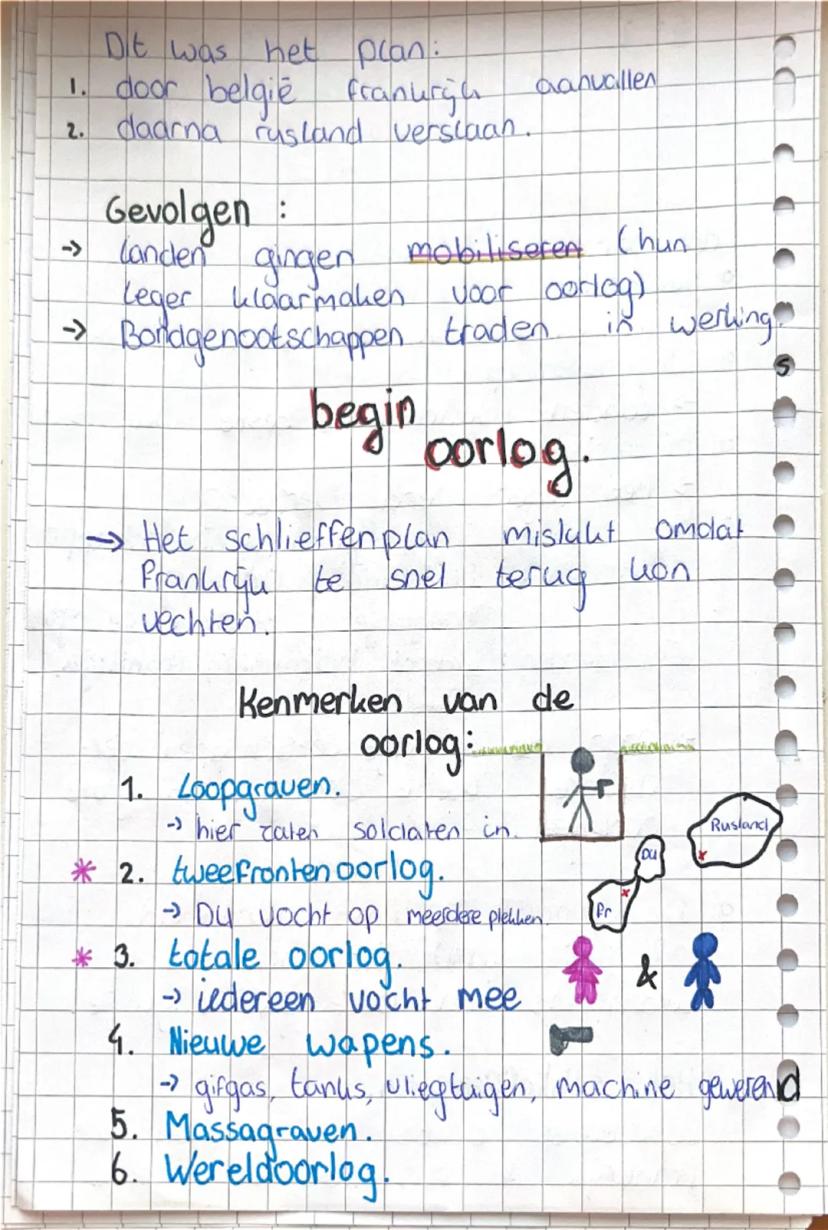 Dit was het plan:
1. door belgië frankrijk aanvallen
2. daarna rusland verslaan.
Gevolgen :
-> landen gingen mobiliseren (hun
leger klaarmaken voor oorlog)
-> Bondgenootschappen traden in werking.
s
begin
oorlog.
-> Het schlieffenplan mislukt omdat
frankrijk te snel terug kon
vechten.
Kenmerken van de
oorlog:
1. Loopgraven.
-> hier zaten soldaten in.
Rusland
* 2. tweefrontenoorlog.
DU
-> DU vocht op meerdere plekken.
Fr
* 3. totale oorlog.
&
-> iedereen vocht mee
4. Nieuwe wapens.
-> gifgas, tanks, vliegtuigen, machine geweren d
5. Massagraven.
6. Wereldoorlog.